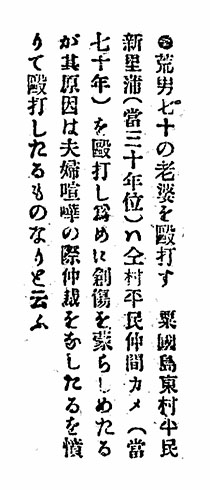 ◉荒男七十の老婆を毆打す　粟國島東村平民
新里浦(當三十年位)ハ仝村平民仲間カメ(當
七十年)を毆打し爲めに創傷を蒙らしめたる
が其原因は夫婦喧嘩の際仲裁をなしたるを憤
りて毆打したるものなりと云ふ